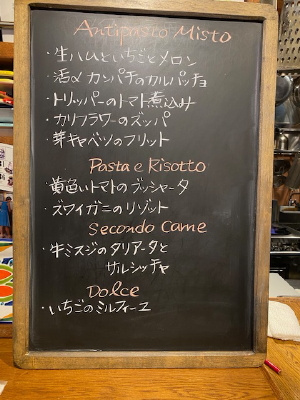 Antipasto Misto
・生ハムといちごとメロン
・活〆カンパチのカルパッチョ
・トリッパーのトマト煮込み
・カリフラワーのズッパ
・芽キャベツのフリット
Pasta e Risotto
・黄色いトマトのブッシャータ
・ズワイガニのリゾット
Secondo Carne
・牛ミスジのタリアータと
サルシッチャ
Dolce
・いちごのミルフィーユ